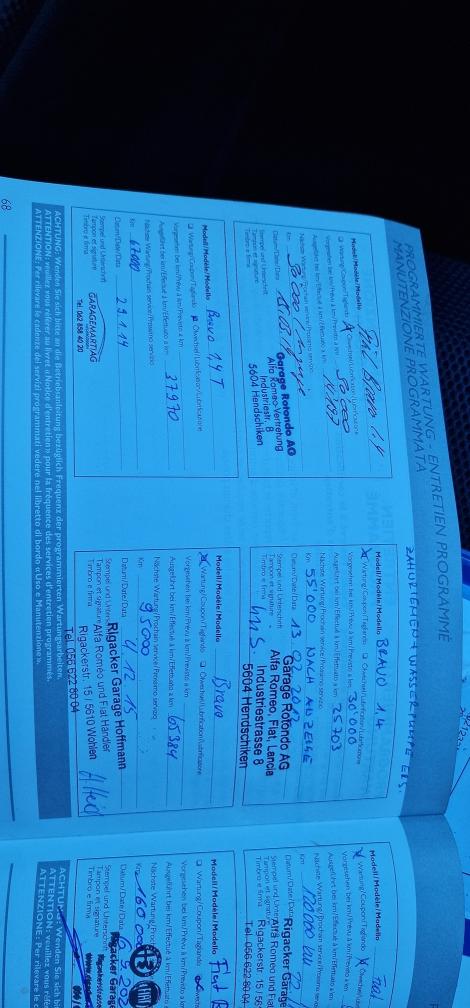 PROGRAMMIERTE WARTUNG - ENTRETIEN PROGRAMMÉ
MANUTENZIONE PROGRAMMATA
Modell/Modèle/Modello Fiat Bravo 1.4
Wartung/Coupon/Tagliando Ölwechsel/Lubrification/Lubrificazione
Vorgesehen bei km/Prévu à km/Previsto a km
Ausgeführt bei km/Effectué à km/Effettuato a km
Nächste Wartung/Prochain service/Prossimo servizio
Km
Datum/Date/Data
Stempel und Unterschrift
Tampon et signature
Timbro e firma
Garage Rotondo AG
Alfa Romeo-Vertretung
Industriestr. 8
5604 Hendschiken
Modell/Modèle/Modello BRAVO 1.4 T
Wartung/Coupon/Tagliando Ölwechsel/Lubrification/Lubrificazione
Vorgesehen bei km/Prévu à km/Previsto a km
Ausgeführt bei km/Effectué à km/Effettuato a km 37970
Nächste Wartung/Prochain service/Prossimo servizio
Km 67000
Datum/Date/Data 29.1.14
Stempel und Unterschrift
Tampon et signature
Timbro e firma
GARAGEMARTIAG
Tel. 062 858 40 20
ZAHNRIEMEN + WASSERPUMPE ERS.
Modell/Modèle/Modello BRAVO 1.4
Wartung/Coupon/Tagliando Ölwechsel/Lubrification/Lubrificazione
Vorgesehen bei km/Prévu à km/Previsto a km 30'000
Ausgeführt bei km/Effectué à km/Effettuato a km 25703
Nächste Wartung/Prochain service/Prossimo servizio
Km 55'000 NACH ANZEIGE
Datum/Date/Data 13 02
Stempel und Unterschrift
Tampon et signature
Timbro e firma
Garage Rotondo AG
Alfa Romeo, Fiat, Lancia
Industriestrasse 8
5604 Hendschiken
Modell/Modèle/Modello Bravo
Wartung/Coupon/Tagliando Ölwechsel/Lubrification/Lubrificazione
Vorgesehen bei km/Prévu à km/Previsto a km
Ausgeführt bei km/Effectué à km/Effettuato a km 65384
Nächste Wartung/Prochain service/Prossimo servizio
Km 95000
Datum/Date/Data 4.12.15
Stempel und Unterschrift
Tampon et signature
Timbro e firma
Rigacker Garage Hoffmann
Alfa Romeo und Fiat Händler
Rigackerstr. 15 / 5610 Wohlen
Tel. 056 622 80 04
ACHTUNG: Wenden Sie sich bitte an die Betriebsanleitung bezüglich Frequenz der programmierten Wartungsarbeiten.
ATTENTION: veuillez vous référer au livret «Notice d'entretien» pour la fréquence des services d'entretien programmés.
ATTENZIONE: Per rilevare le cadenze dei servizi programmati vedere nel libretto di bordo «Uso e Manutenzione».
68
Modell/Modèle/Modello
Wartung/Coupon/Tagliando
Vorgesehen bei km/Prévu à km
Ausgeführt bei km/Effectué
Nächste Wartung/Prochain
Km
Datum/Date/Data
Stempel und
Tampon et signature
Timbro e firma
Rigacker Garage
Alfa Romeo und Fiat
Rigackerstr. 15 / 56
Tel. 056 622 80 04
Modell/Modèle/Modello Fiat
Wartung/Coupon/Tagliando
Vorgesehen bei km/Prévu à km/Previsto
Ausgeführt bei km/Effectué à km
Nächste Wartung
Km 160'000
Datum/Date/Data
Stempel und
Tampon et signature
Timbro e firma
Rigacker Gara
ACHTUNG: Wenden Sie sich bi
ATTENTION: veuillez vous réfé
ATTENZIONE: Per rilevare le c